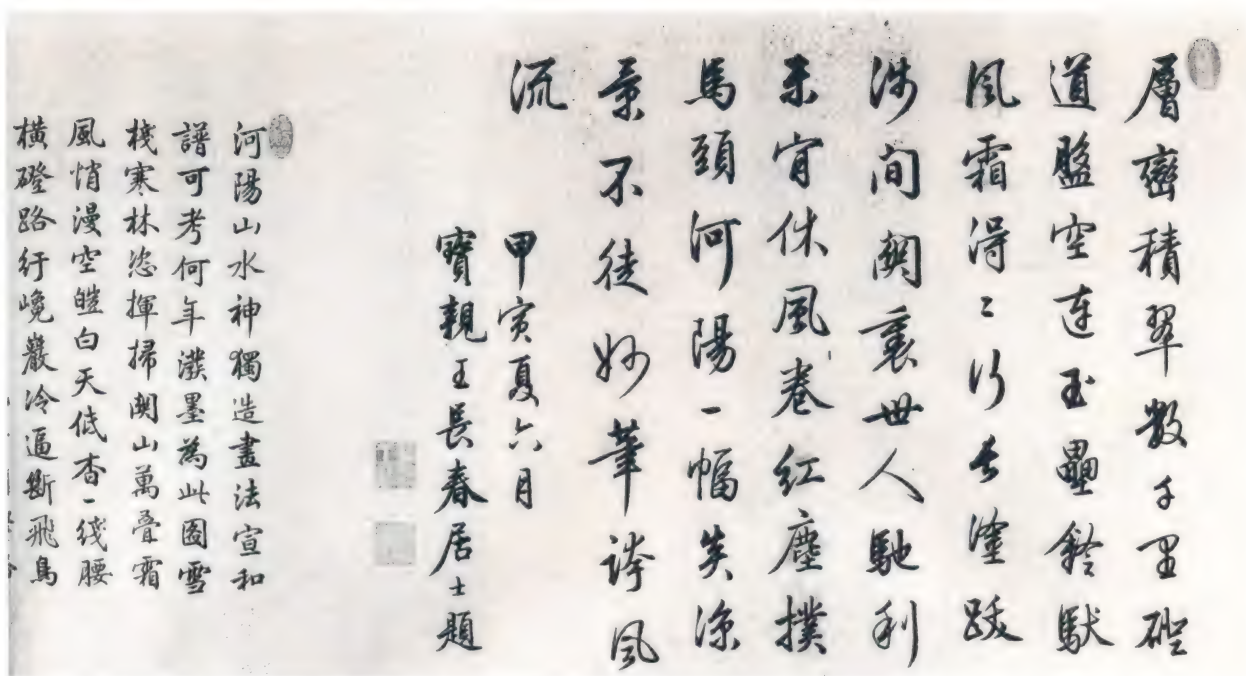 層巒積翠數千里磴
道盤空連玉壘鈴馱
風霜得〻行長塗跋
涉間關裏世人馳利
未肯休風卷紅塵撲
馬頭河陽一幅炎涼
景不徒妙筆誇風
流
甲寅夏六月
寶親王長春居士題
河陽山水神獨造畫法宣和
譜可考何年潑墨為此圖雪
棧寒林恣揮掃關山萬疊霜
風悄漫空皚白天低杳一綫腰
橫磴路紆巉巖冷逼斷飛鳥